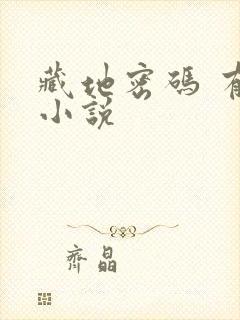 藏地密碼
小說
齊晶